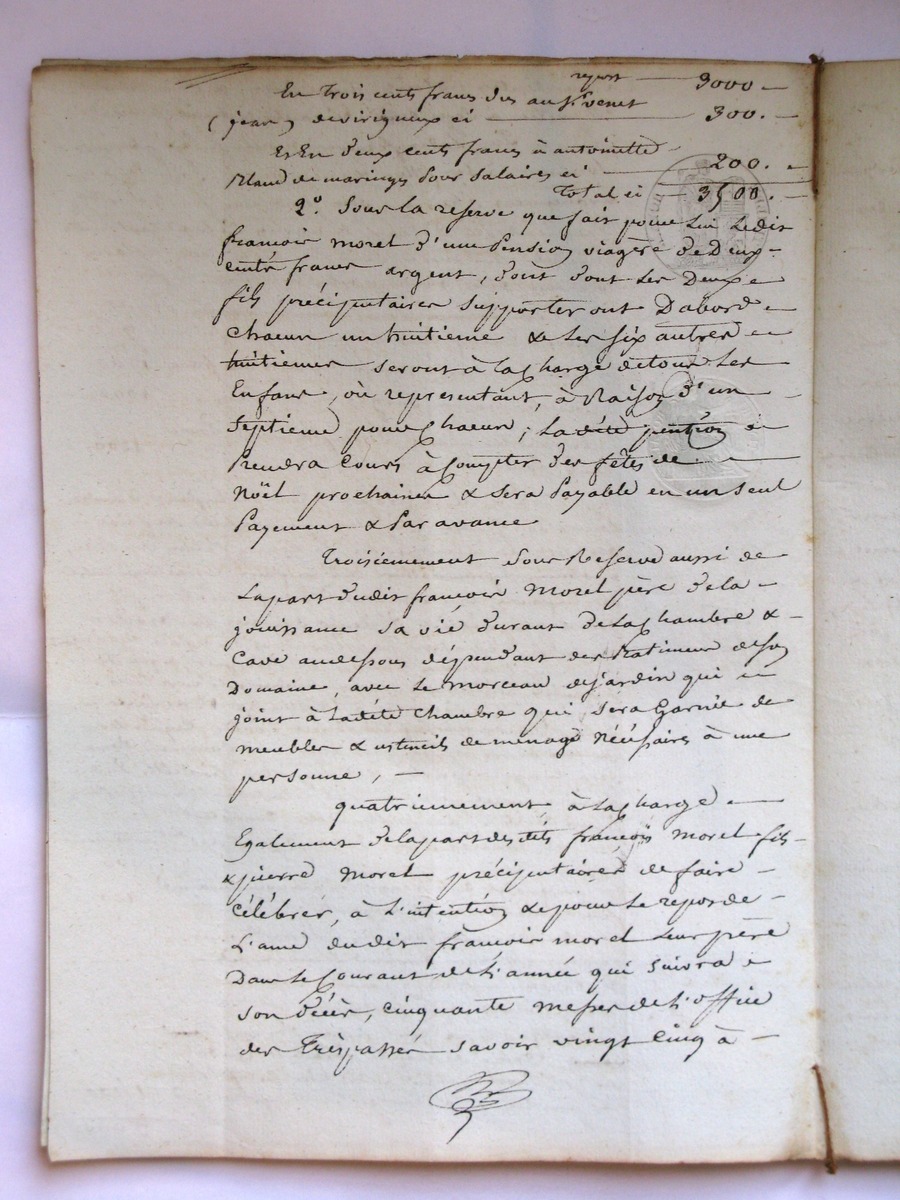 report — 3000 —
En trois cents francs dus au Sr venet
(jean) de virigneux ci — 300. —
Et En deux cents francs à antoinette
Rlaud de maringes pour salaires ci — 200. —
Total ci — 3500. —
2° Sous la reserve que fait pour lui ledit
françois morel d'une pension viagère de Deux-
cents francs argent, dont dont les Deux
fils préciputaires supporteront D'abord
chacun un huitieme & les six autres
huitiemes seront à la charge de tous les
Enfans, où representant, à Raison d'un
Septieme pour chacun; La dité pention
Prendra Cours à Compter des fêtes de
Noël prochaines & sera payable en un seul
Payement & Par avance
Troisiemement sous Reserve aussi de
La part dudit francois Morel père de la
jouissance sa vie durant de la chambre &
Cave audessous dépendant des Batimens de son
Domaine, avec le morceau de jardin qui
joint à La dité chambre qui sera Garnie de
meubles & ustencils de ménage nécéssaires à une
personne, —
quatriemement à la charge
Egalement de la part desdits françois Morel fils
& pierre Morel préciputaires de faire
célébrer, à L'intention & pour le repos de
L'ame dudit françois morel leur père
Dans le Courant de L'année qui suivra
son décès, cinquante messes de L'office
des Trépassés savoir vingt Cinq à